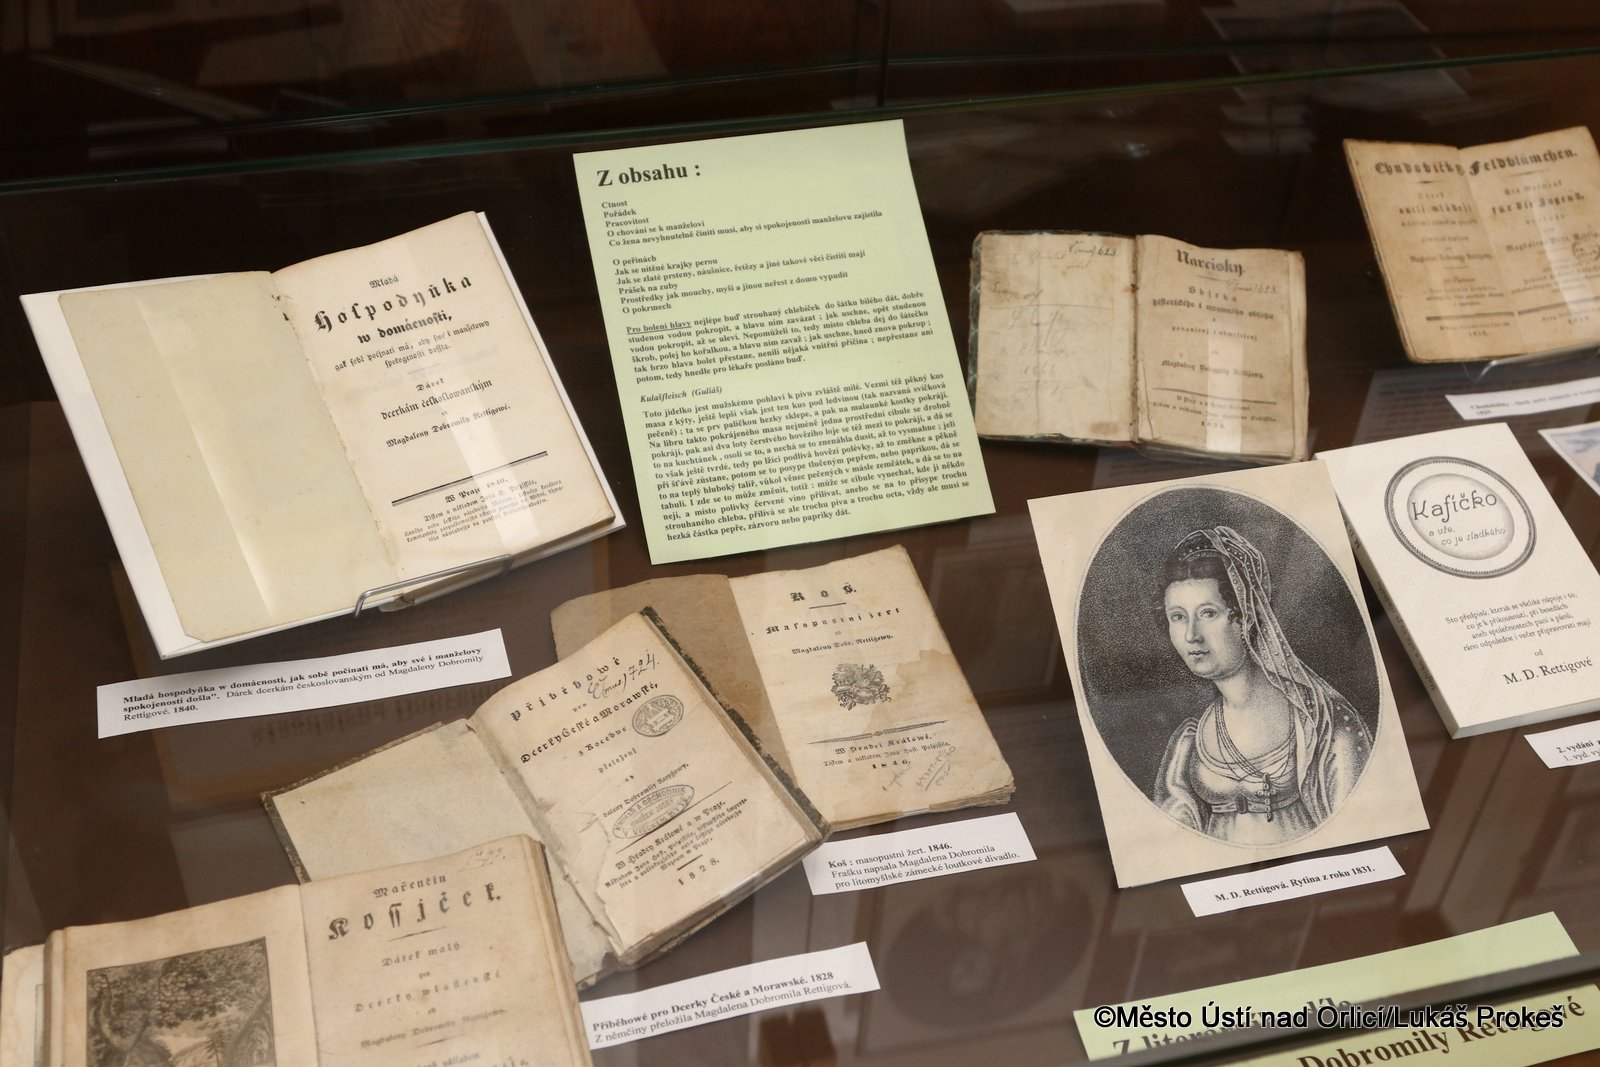 Mladá
Hospodyňka
w domácnosti,
gak sobě počjnati má, aby swé i manželowy
spokogenosti dossla.
Dárek
dcerkám českoslowanským
od
Magdaleny Dobromily Rettigowé.
W Praze 1840.
Z obsahu :
Ctnost
Pořádek
Pracovitost
O chování se k manželovi
Co žena nevyhnutelně činiti musí, aby si spokojenosti manželovu zajistila
O peřinách
Jak se nitěné krajky perou
Jak se zlaté prsteny, náušnice, řetězy a jiné takové věci čistiti mají
Prášek na zuby
Prostředky jak mouchy, myši a jinou neřest z domu vypudit
O pokrmech
Pro bolení hlavy nejlépe buď strouhaný chlebíček do šátku bílého dát, dobře
studenou vodou pokropit, a hlavu ním zavázat ; jak uschne, opět studenou
vodou pokropit, až se uleví. Nepomůželi to, tedy místo chleba dej do šátečku
škrob, polej ho kořalkou, a hlavu ním zavaž ; jak uschne, hned znova pokrop ;
tak brzo hlava bolet přestane, neníli nějaká vnitřní příčina ; nepřestane ani
potom, tedy hnedle pro lékaře posláno buď.
Kulašfleisch (Guliáš)
Toto jídelko jest mužskému pohlaví k pivu zvláště milé. Vezmi též pěkný kus
masa z kýty, ještě lepší však jest ten kus pod ledvinou (tak nazvaná svíčková
pečeně) ; ta se prv paličkou hezky sklepe, a pak na malaunké kostky pokrájí.
Na libru takto pokrájeného masa nejméně jedna prostřední cibule se drobně
pokrájí, pak asi dva loty čerstvého hovězího loje se též mezi to pokrájí, a dá se
to na kuchtánek , osolí se to, a nechá se to znenáhla dusit, až to vysmahne ; jeli
to však ještě tvrdé, tedy po lžíci podlívá hovězí polévky, až to změkne a pěkně
při šťávě zůstane, potom se to posype tlučeným pepřem, nebo paprikou, dá se
to na teplý hluboký talíř, vůkol věnec pečených v másle zemčátek, a dá se to na
tabuli. I zde se to může změnit, totiž : může se cibule vynechat, kde jí někdo
nejí, a místo polívky červené víno přilívat, anebo se na to přisype trochu
strouhaného chleba, přilívá se ale trochu piva a trochu octa, vždy ale musí se
hezká částka pepře, zázvoru nebo papriky dát.
Narcisky.
Sbjrka
historického i mrawného obsahu
Magdaleny Dobromily Rettigowy.
Chudobičky
Feldblümchen.
für die Jugend,
Mladá hospodyňka v domácnosti, jak sobě počínati má, aby své i manželovy
spokojenosti došla". Dárek dcerkám československým od Magdaleny Dobromily
Rettigové. 1840.
Přjběhowé
pro
Dcerky České a Morawské,
z Kocebue
přeložení
1828.
Koš.
Masopustnj žert
od
Magdaleny Dobr. Rettigowy.
W Hradci Králowé,
Tiskem a nákladem Jana Host. Pospjšila,
1846.
Koš : masopustní žert. 1846.
Frašku napsala Magdalena Dobromila
pro litomyšlské zámecké loutkové divadlo.
Kafíčko
a vše,
co je sladkého
Sto předpisů, kterak se všeliké nápoje i to,
co je k přikousnutí, při besedách
aneb společnostech paní a pánů,
ráno odpoledne i večer připravovati mají
od
M. D. Rettigové
2. vydání
1. vyd.
M. D. Rettigová. Rytina z roku 1831.
Mařenčin
Kossjček.
Dárek malý
pro
Dcerky wlastenské
od
Magdaleny Dobromily Rettigowy.
Příběhowé pro Dcerky České a Morawské. 1828
Z němčiny přeložila Magdalena Dobromila Rettigová.
Dobromily Rettigové
©Město Ústí nad Orlicí/Lukáš Prokeš